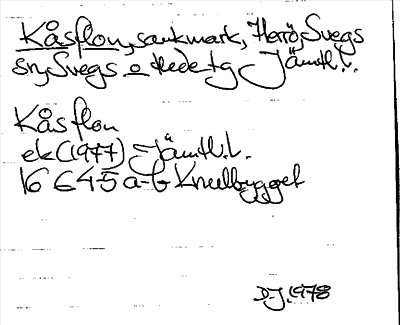 Kåsflon, sankmark, Herrö, Svegs
sn, Svegs o Hede tg Jämtl. l.
Kåsflon
ek (1977) Jämtl. l.
16 E 4-5 a-b Kneelbygget
D-J. 1978